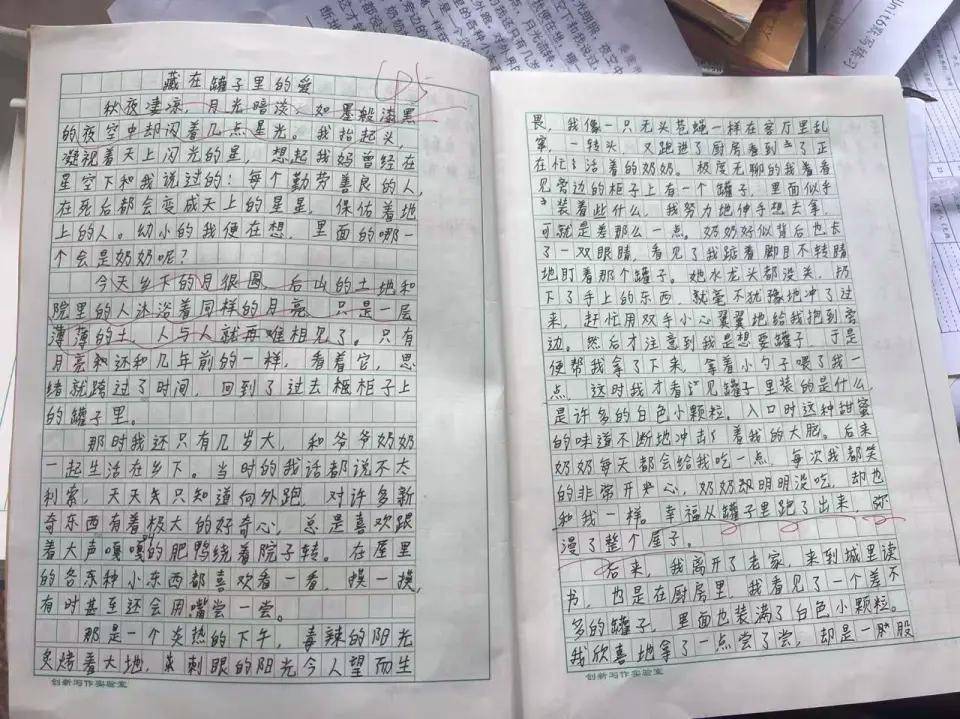 藏在罐子里的爱
秋夜凄凉，月光暗淡，如墨般漆黑
的夜空中却闪着几点星光。我抬起头，
凝视着天上闪光的星，想起我妈曾经在
星空下和我说过的：每个勤劳善良的人，
在死后都会变成天上的星星，保佑着地
上的人。幼小的我便在想，里面的哪一
个会是奶奶呢？
今天乡下的月很圆，后山的土地和
院里的人沐浴着同样的月亮，只是一层
薄薄的土，人与人就再难相见了。只有
月亮还和几年前的一样，看着它，思
绪就跨过了时间，回到了过去柜子上
的罐子里。
那时我还只有几岁大，和爷爷奶奶
一起生活在乡下。当时的我话都说不大
利索，天天只知道向外跑，对许多新
奇东西有着极大的好奇心，总是喜欢跟
着大声嘎嘎的肥鸭绕着院子转。在屋里
的各种小东西都喜欢看一看，摸一摸，
有时甚至还会用嘴尝一尝。
那是一个炎热的下午，毒辣的阳光
炙烤着大地，刺眼的阳光令人望而生
创新写作实验室
畏，我像一只无头苍蝇一样在客厅里乱
窜，一转头，又跑进了厨房看到了正
在忙活着的奶奶。极度无聊的我看着
见旁边的柜子上有一个罐子，里面似乎
装着些什么，我努力地伸手想去拿，
可就是差那么一点。奶奶好似背后也长
了一双眼睛，看见了我踮着脚目不转睛
地盯着那个罐子。她水龙头都没关，扔
下了手上的东西，就毫不犹豫地冲了过
来，赶忙用双手小心翼翼地给我抱到旁
边。然后才注意到我是想要罐子，于是
便帮我拿了下来，拿着小勺子喂了我一
点，这时我才看见罐子里装的是什么，
是许多的白色小颗粒。入口时这种甜蜜
的味道不断地冲击着我的大脑。后来
奶奶每天都会给我吃一点，每次我都笑
的非常开心，奶奶明明没吃，却也
和我一样。幸福从罐子里跑了出来，弥
漫了整个屋子。
后来，我离开了老家，来到城里读
书，也是在厨房里，我看见了一个差不
多的罐子，里面也装满了白色小颗粒。
我欣喜地拿了一点尝了尝，却是一股
创新写作实验室